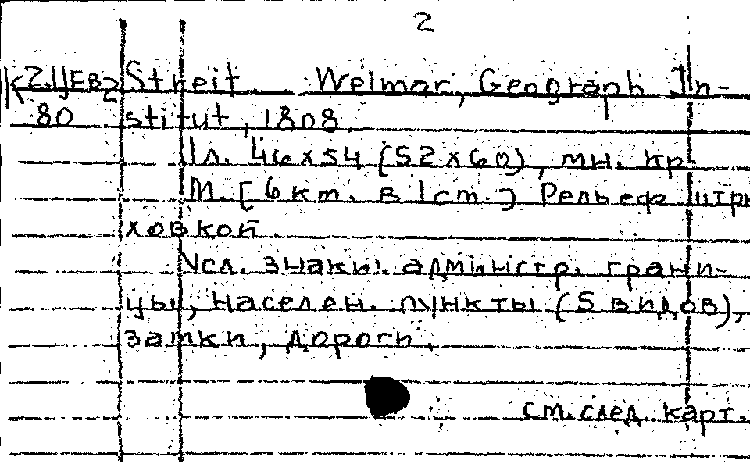 2
К 2.ЦЕВ2 Streit. Weimar, Geograph In-
80 stitut, 1808.
1л. 46×54 (52×60), мн. кр.
М. [6 км. в 1 ст.] Рельеф штри
ховкой.
Усл. знаки: администр. грани-
цы, населен. пункты (5 видов),
замки, дороги.
см. след. карт.